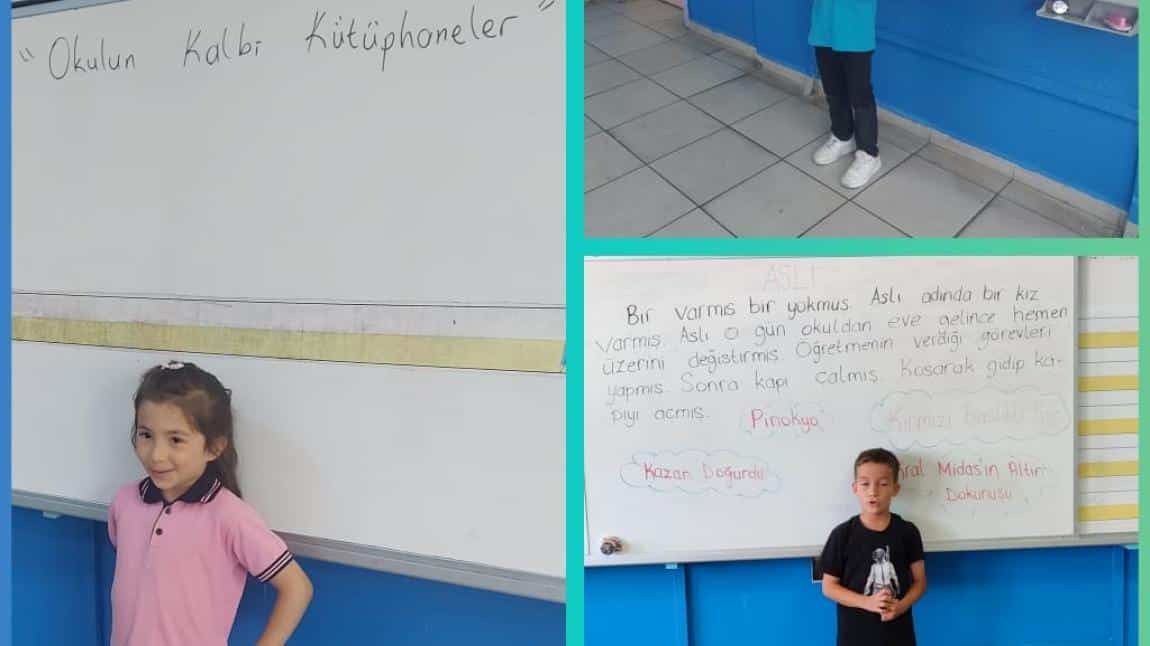 " Okulun Kalbi Kütüphaneler "
ASLI
Bir varmış bir yokmuş. Aslı adında bir kız
varmış. Aslı o gün okuldan eve gelince hemen
üzerini değiştirmiş. Öğretmenin verdiği görevleri
yapmış. Sonra kapı çalmış. Koşarak gidip ka-
pıyı açmış.
Pinokyo
Kırmızı
Kazan Doğurdu
Kral Midas'ın Altın
Dokunuşu